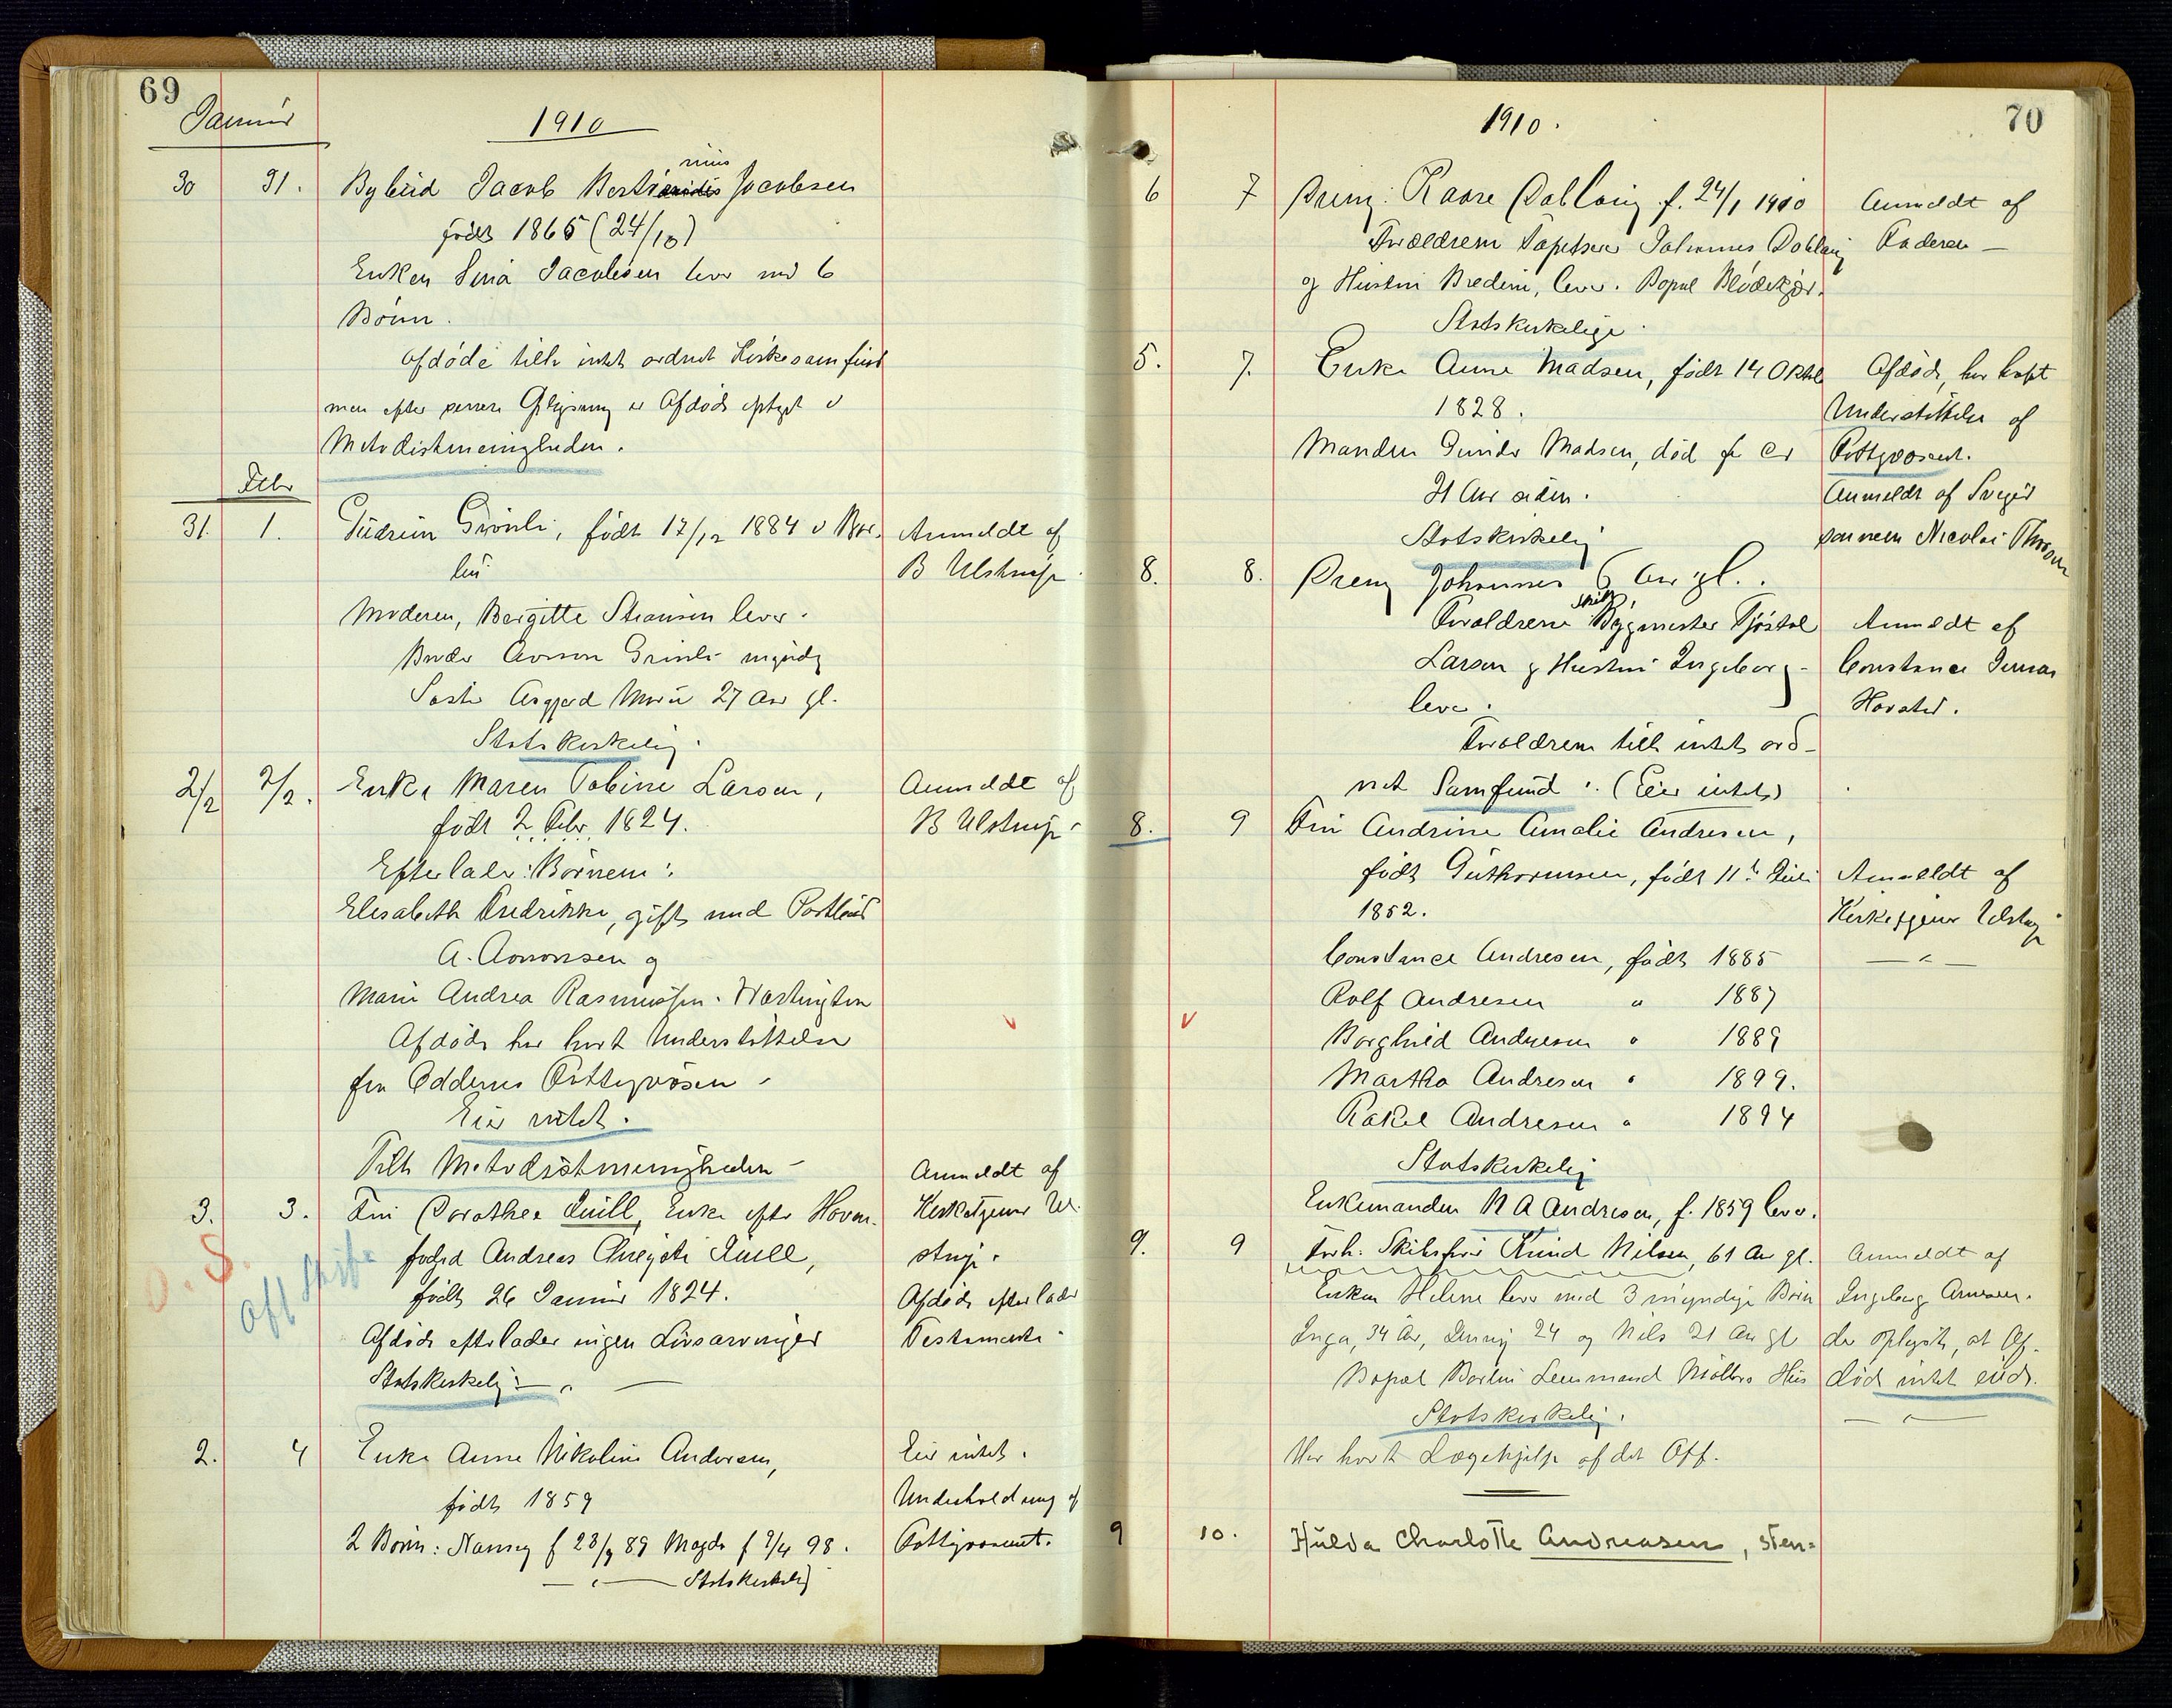 69
Januar
1910
30 31. Bybud Jacob Bertinius Jacobsen
født 1865 (24/10)
Enken Sina Jacobsen lever med 6
Børn.
Afdøde tilh intet ordnet Kirkesamfund
men efter senere Oplysning er Afdøde optaget i
Metodistmenigheden.
Febr
31. 1. Gudrun Grönli, født 17/12 1884 i Ber-
lin
Anmeldt af
B Ulstrup
Moderen, Bergitte lever.
Broder Grönli myndig
Søster Asgjerd Marie 27 Aar gl.
Statskirkelig.
2/2 2/2. Enke Maren Tobine Larsen,
født 2 Febr. 1824.
Anmeldt af
B Ulstrup
Efterlader: Børnene:
Elisabeth Fredrikke, gift med Postbud
A. Aanonsen og
Marie Andrea Rasmussen. Washington
Afdøde har havt Understøttelse
fra Oddernes Fattigvæsen
Eier intet.
Tilh Metodistmenigheden
3. 3. Fru Dorothea Quill, Enke efter Havne-
foged Andreas Quill,
født 26 Januar 1824.
Afdøde efterlader ingen Livsarvinger
Statskirkelig
Anmeldt af
Kirketjener Ul-
strup.
Afdøde efterlader
Testamente
O. S.
Off Skifte
2. 4 Enke Anne Nikoline Andersen,
født 1859
2 Børn: Nanny f 23/9 89 Magda f 7/4 98.
Statskirkelig
Eier intet.
Underholdning af
Fattigvæsenet.
70
1910.
6 7 Dreng: Kaare Dahl f. 24/1 1910
Forældrene Tapetserer Johannes
og Hustru Bredine, lever. Bopæl Blødekjær.
Statskirkelige.
Anmeldt af
Faderen
5. 7. Enke Anne Madsen, født 14 Oktb
1828.
Manden Gunder Madsen, død for ca
21 Aar siden.
Statskirkelig
Afdøde har havt
Understøttelse af
Fattigvæsenet.
Anmeldt af Sviger
sønnen Nicolai
8. 8. Dreng Johannes 6 Aar gl.
Forældrene Bygmester Tjøstol
Larsen og Hustru Ingeborg
lever.
Forældrene tilh intet ord-
net Samfund. (Eier intet)
Anmeldt af
Constance
8. 9 Fru Andrine Amalie Andresen,
født Guthormsen, født 11te Juli
1852.
Anmeldt af
Kirketjener Ulstrup
Constance Andresen, født 1885
Rolf Andresen " 1887
Borghild Andresen " 1889
Martha Andresen " 1899.
Rakel Andresen " 1894
Statskirkelig
Enkemanden N A Andresen, f. 1859 lever.
9. 9 Forh. Skibsfører Knud Nilsen, 61 Aar gl.
Enken Helene lever med 3 myndige Børn
Inga, 34 Aar, Jenny 24 og Nils 21 Aar gl
Bopæl Lensmand Møllers Hus
Statskirkelig.
Har havt Lægehjelp af det Off.
Anmeldt af
Ingeborg Arnesen.
der oplyste, at Af-
død intet eiede.
9 10. Hulda Charlotte Andreasen, sten-